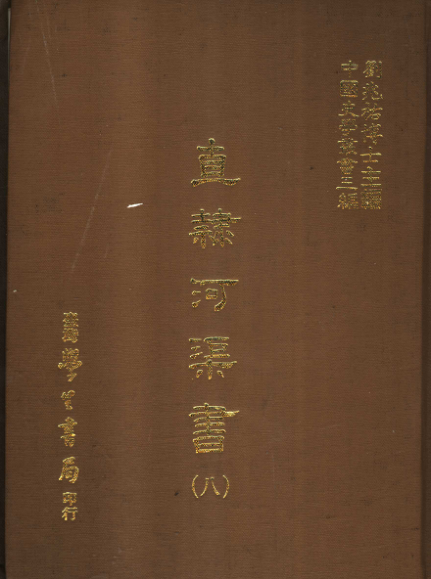 劉兆祐博士主編
中國史學叢書三編
直隸河渠書
(八)
臺灣學生書局印行